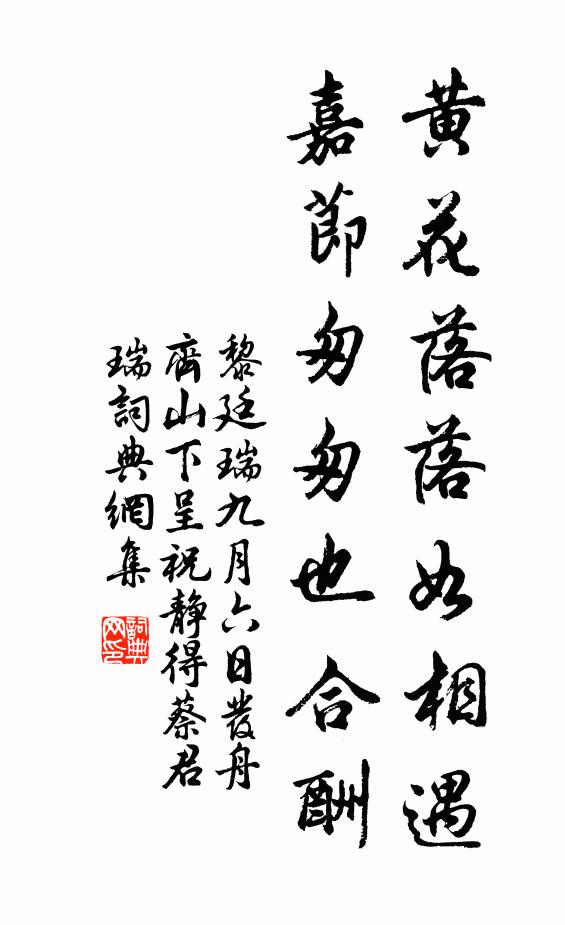 黄花落落如相遇
嘉節匆匆也合酬
黎廷瑞九月六日發舟
齊山下呈祝靜得蔡君
瑞詞典網集
詞典网印